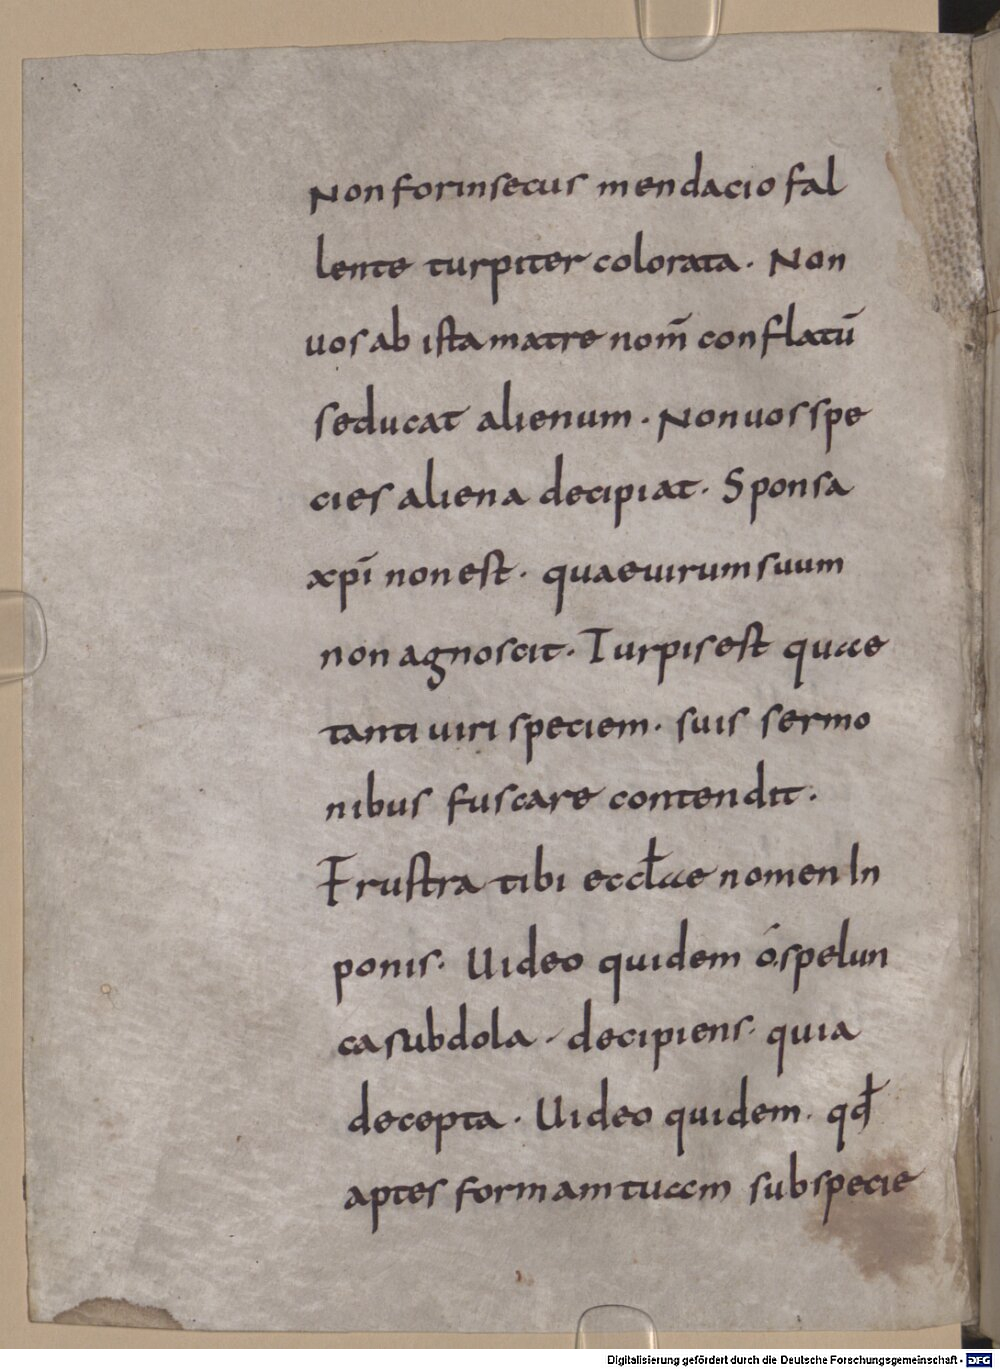 Non forinsecus mendacio fal
lente turpiter colorata · Non
uos ab ista matre nom̄ conflatū
seducat alienum · Non uos spe
cies aliena decipiat · Sponsa
xp̄i non est · quae uirum suum
non agnoscit · Turpis est quae
tanti uiri speciem · suis sermo
nibus fuscare contendit ·
Frustra tibi eccłae nomen In
ponis · Uideo quidem ó spelun
ca subdola · decipiens · quia
decepta · Uideo quidem · qđ
aptes formam tuam sub specie
Digitalisierung gefördert durch die Deutsche Forschungsgemeinschaft - DFG